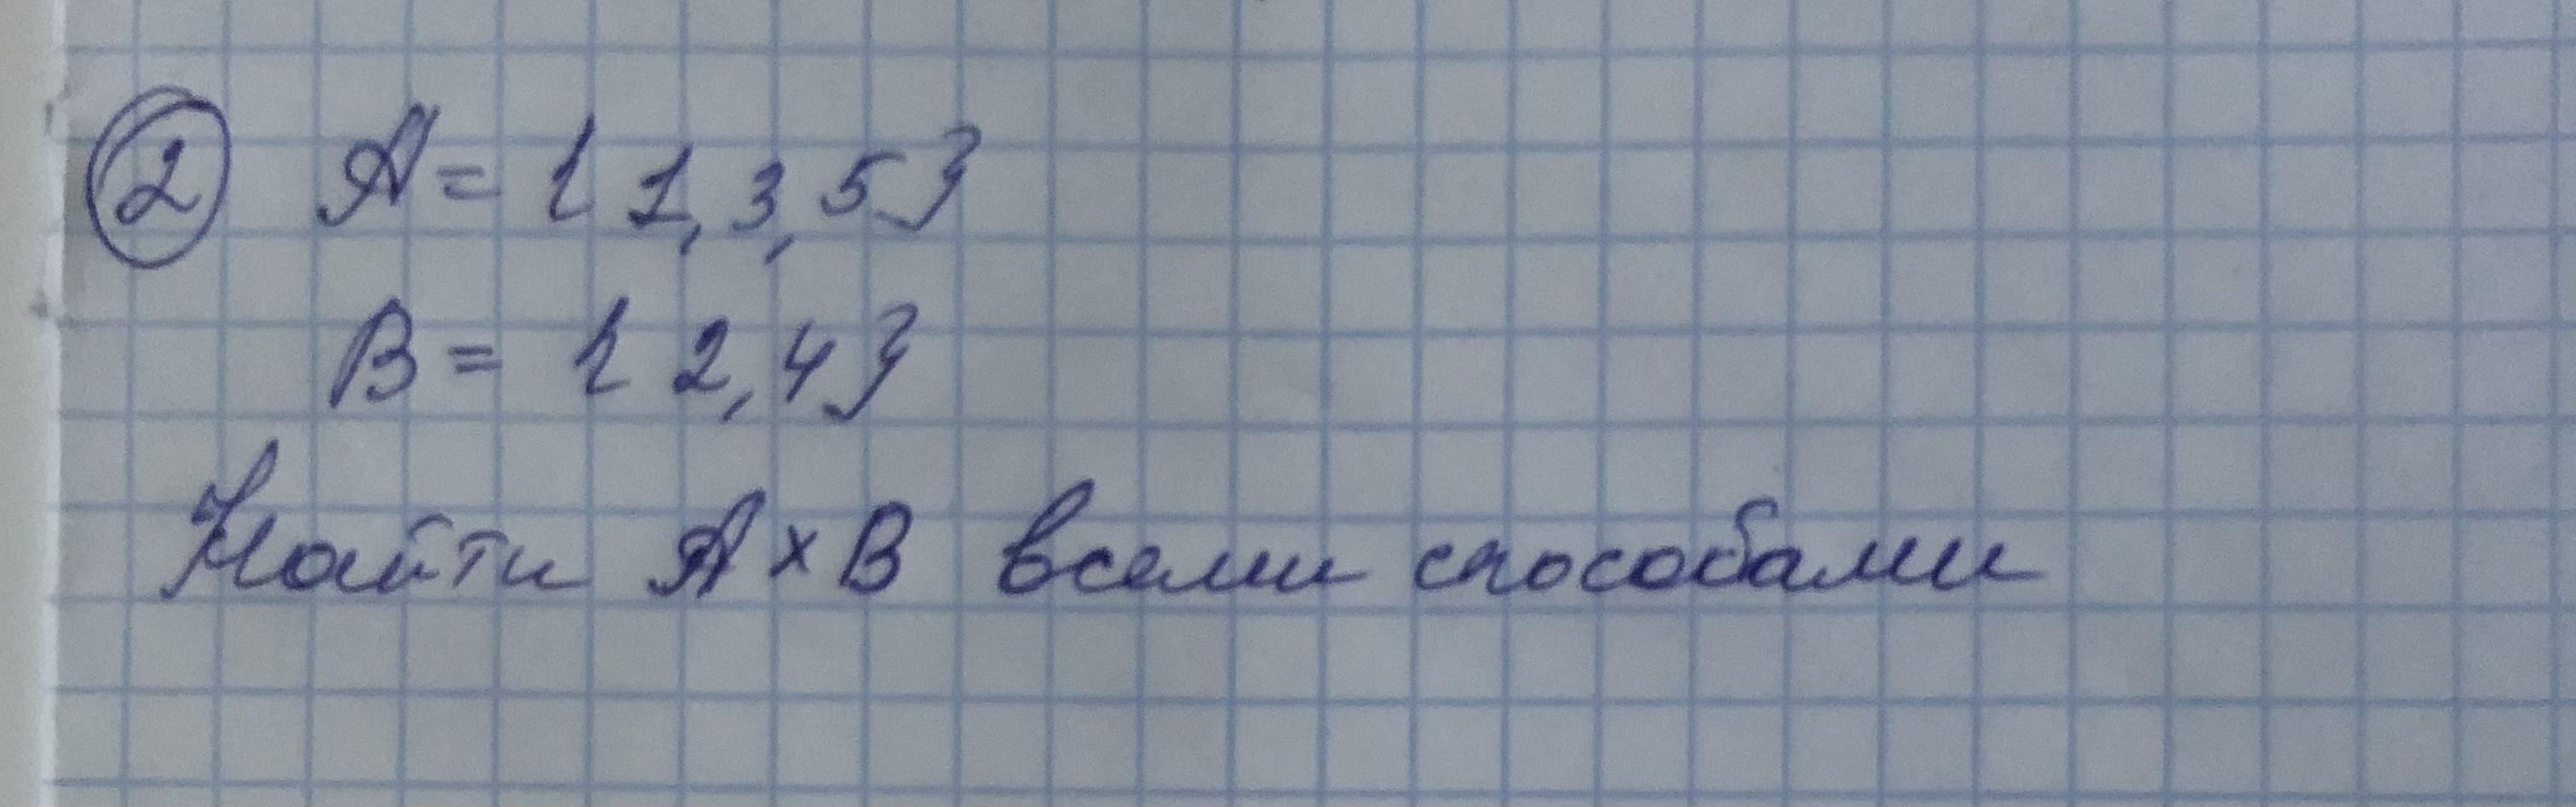 ② A = { 1, 3, 5 }
B = { 2, 4 }
Найти A × B всеми способами